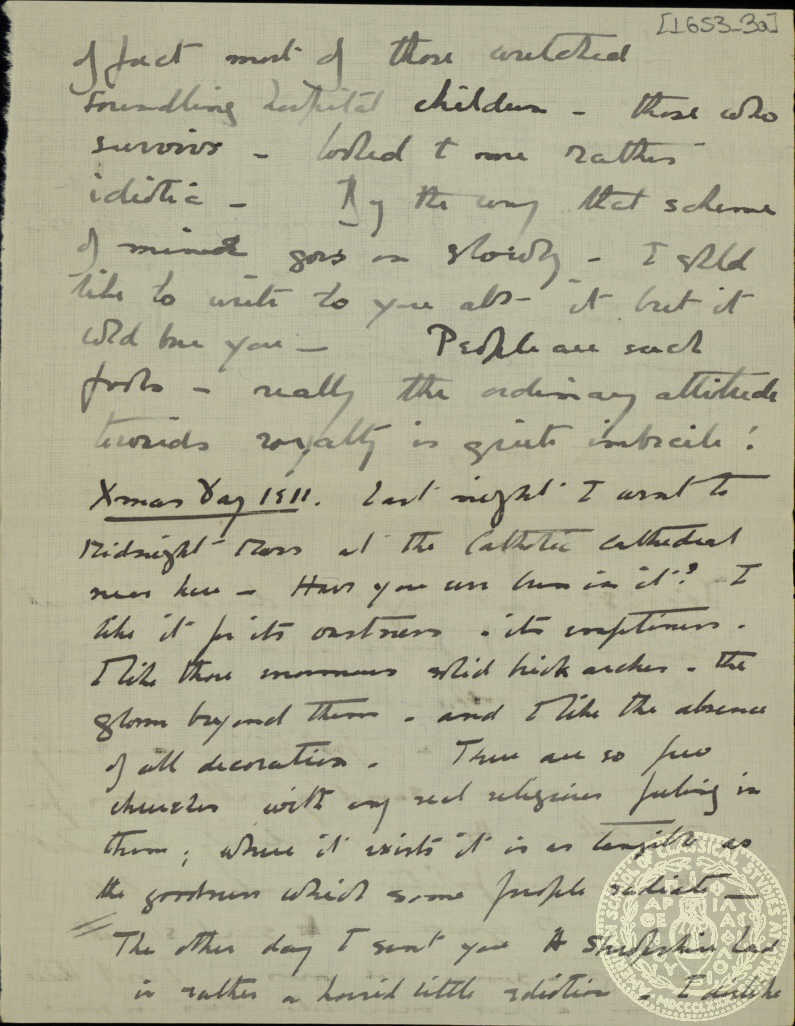 [1653-3a]
of fact most of those wretched
foundling hospital children - those who
survive - looked to me rather
idiotic - By the way that scheme
of mine goes on slowly - I shld
like to write to you abt it but it
wld bore you - People are such
fools - really the ordinary attitude
towards royalty is quite imbecile!
Xmas Day 1911. Last night I went to
Midnight Mass at the Catholic cathedral
near here - Have you ever been in it? I
like it for its vastness - its emptiness -
I like those enormous solid brick arches - the
gloom beyond them - and I like the absence
of all decoration - There are so few
churches with any real religious feeling in
them; where it exists it is as tangible as
the goodness which some people radiate -
The other day I sent you A Shropshire Lad
in rather a horrid little edition - I dislike